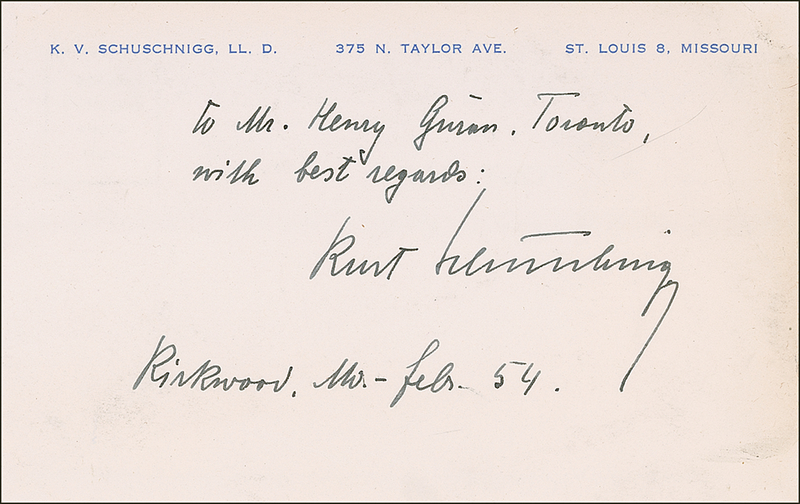 K. V. SCHUSCHNIGG, LL. D. 375 N. TAYLOR AVE. ST. LOUIS 8, MISSOURI
to Mr. Henry Guran, Toronto,
with best regards:
Kurt Schuschnigg
Kirkwood, Mo. – febr. 54.